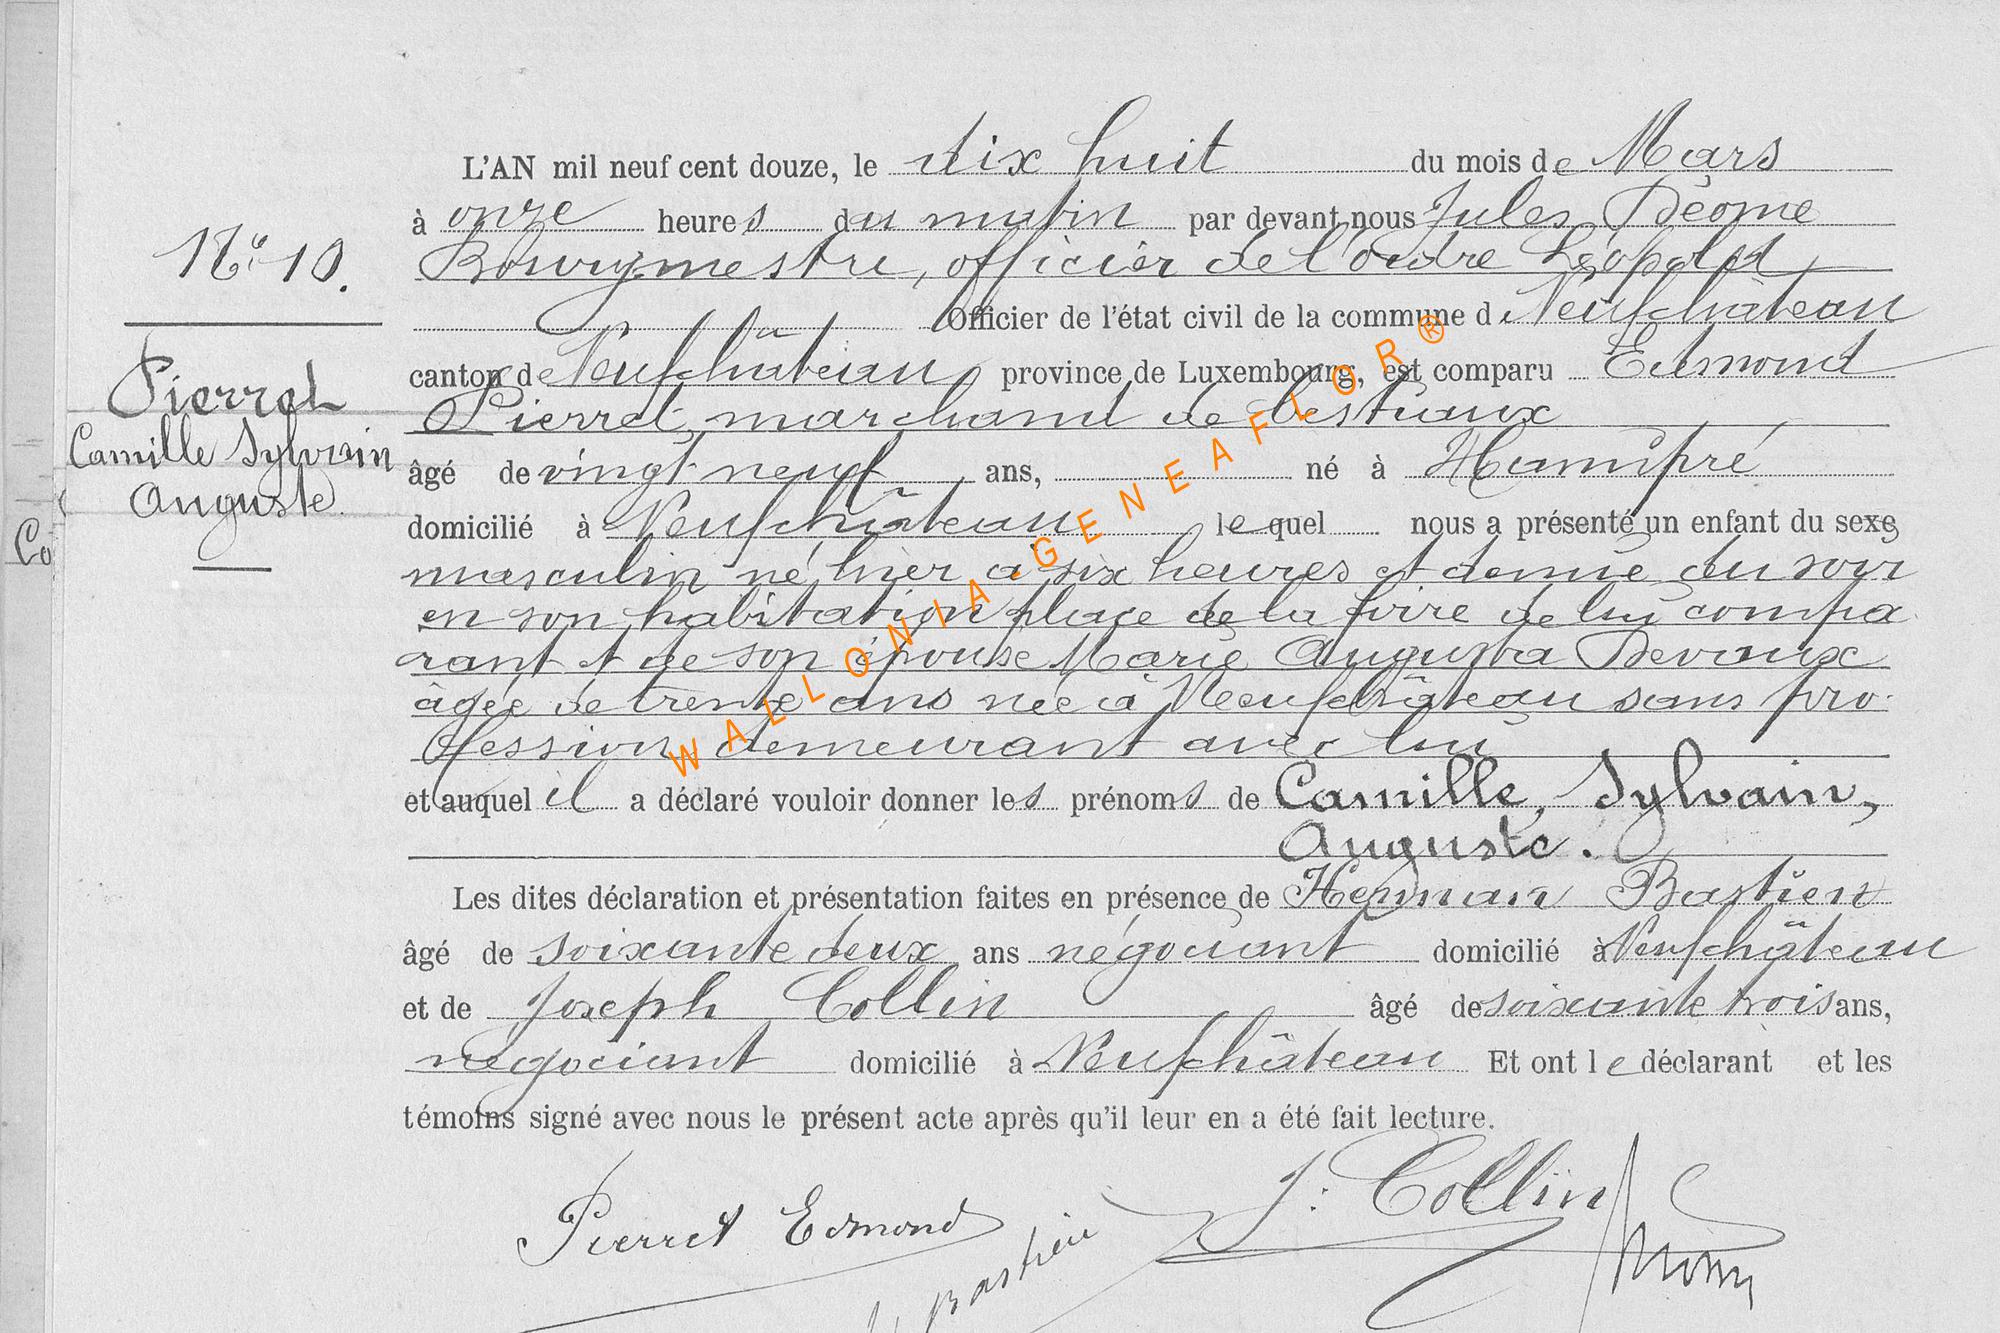 L'AN mil neuf cent douze, le dix huit du mois de Mars
à onze heures du matin par devant nous Jules Déome
Bourgmestre, officier de l'ordre Léopold,
Officier de l'état civil de la commune d Neufchâteau
canton de Neufchâteau, province de Luxembourg, est comparu Edmond
Pierret, marchand de bestiaux
âgé de vingt-neuf ans, né à Hamipré
domicilié à Neufchâteau lequel nous a présenté un enfant du sexe
masculin né hier à six heures et demie du soir
en son habitation place de la foire de lui compa
rant et de son épouse Marie Augusta Devaux
âgée de trente ans née à Neufchâteau sans pro-
fession, demeurant avec lui
et auquel il a déclaré vouloir donner les prénoms de Camille, Sylvain,
Auguste.
Les dites déclaration et présentation faites en présence de Herman Bastien
âgé de soixante deux ans négociant domicilié à Neufchâteau
et de Joseph Collin âgé de soixante trois ans,
négociant domicilié à Neufchâteau Et ont le déclarant et les
témoins signé avec nous le présent acte après qu'il leur en a été fait lecture.
Pierret Edmond
Bastien
J. Collin
N° 10.
Pierret
Camille Sylvain
Auguste.
Co
WALLONIA-GENEAFLOR®